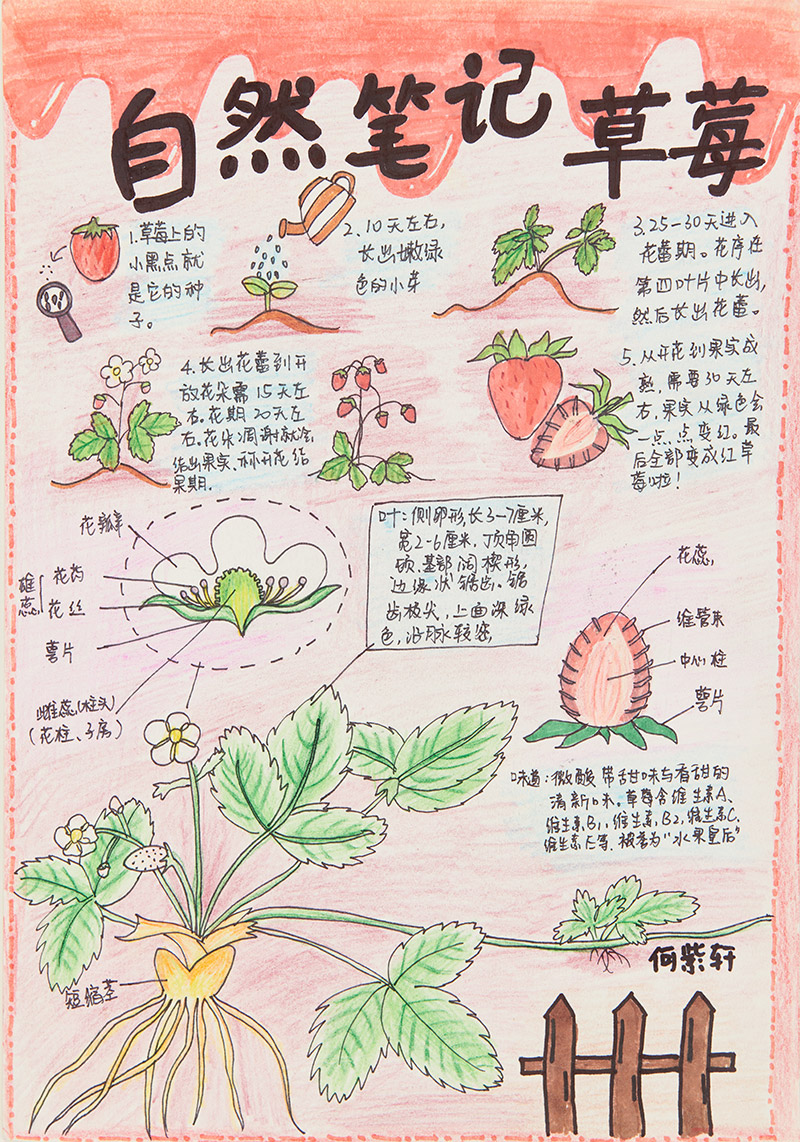 自然笔记 草莓
1.草莓上的
小黑点就
是它的种
子。
2.10天左右,
长出嫩绿
色的小芽
3.25-30天进入
花蕾期。花序在
第四叶片中长出,
然后长出花蕾。
4.长出花蕾到开
放花朵需15天左
右。花期20天左
右。花朵凋谢就会
结出果实、称开花结
果期.
5.从开花到果实成
熟,需要30天左
右,果实从绿色会
一点、点变红。最
后全部变成红草
莓啦!
花瓣
雄蕊
花药
花丝
萼片
雌蕊(柱头)
(花柱、子房)
叶:倒卵形,长3-7厘米,
宽2-6厘米,顶角圆
顿.基部阔楔形,
边缘状锯齿.锯
齿极尖,上面深绿
色,沿脉较密
花蕊
维管束
中心柱
萼片
味道:微酸带甜味与香甜的
清新味。草莓含维生素A、
维生素B1,维生素B2,维生素C、
维生素E等.被誉为"水果皇后"
何紫轩
短缩茎